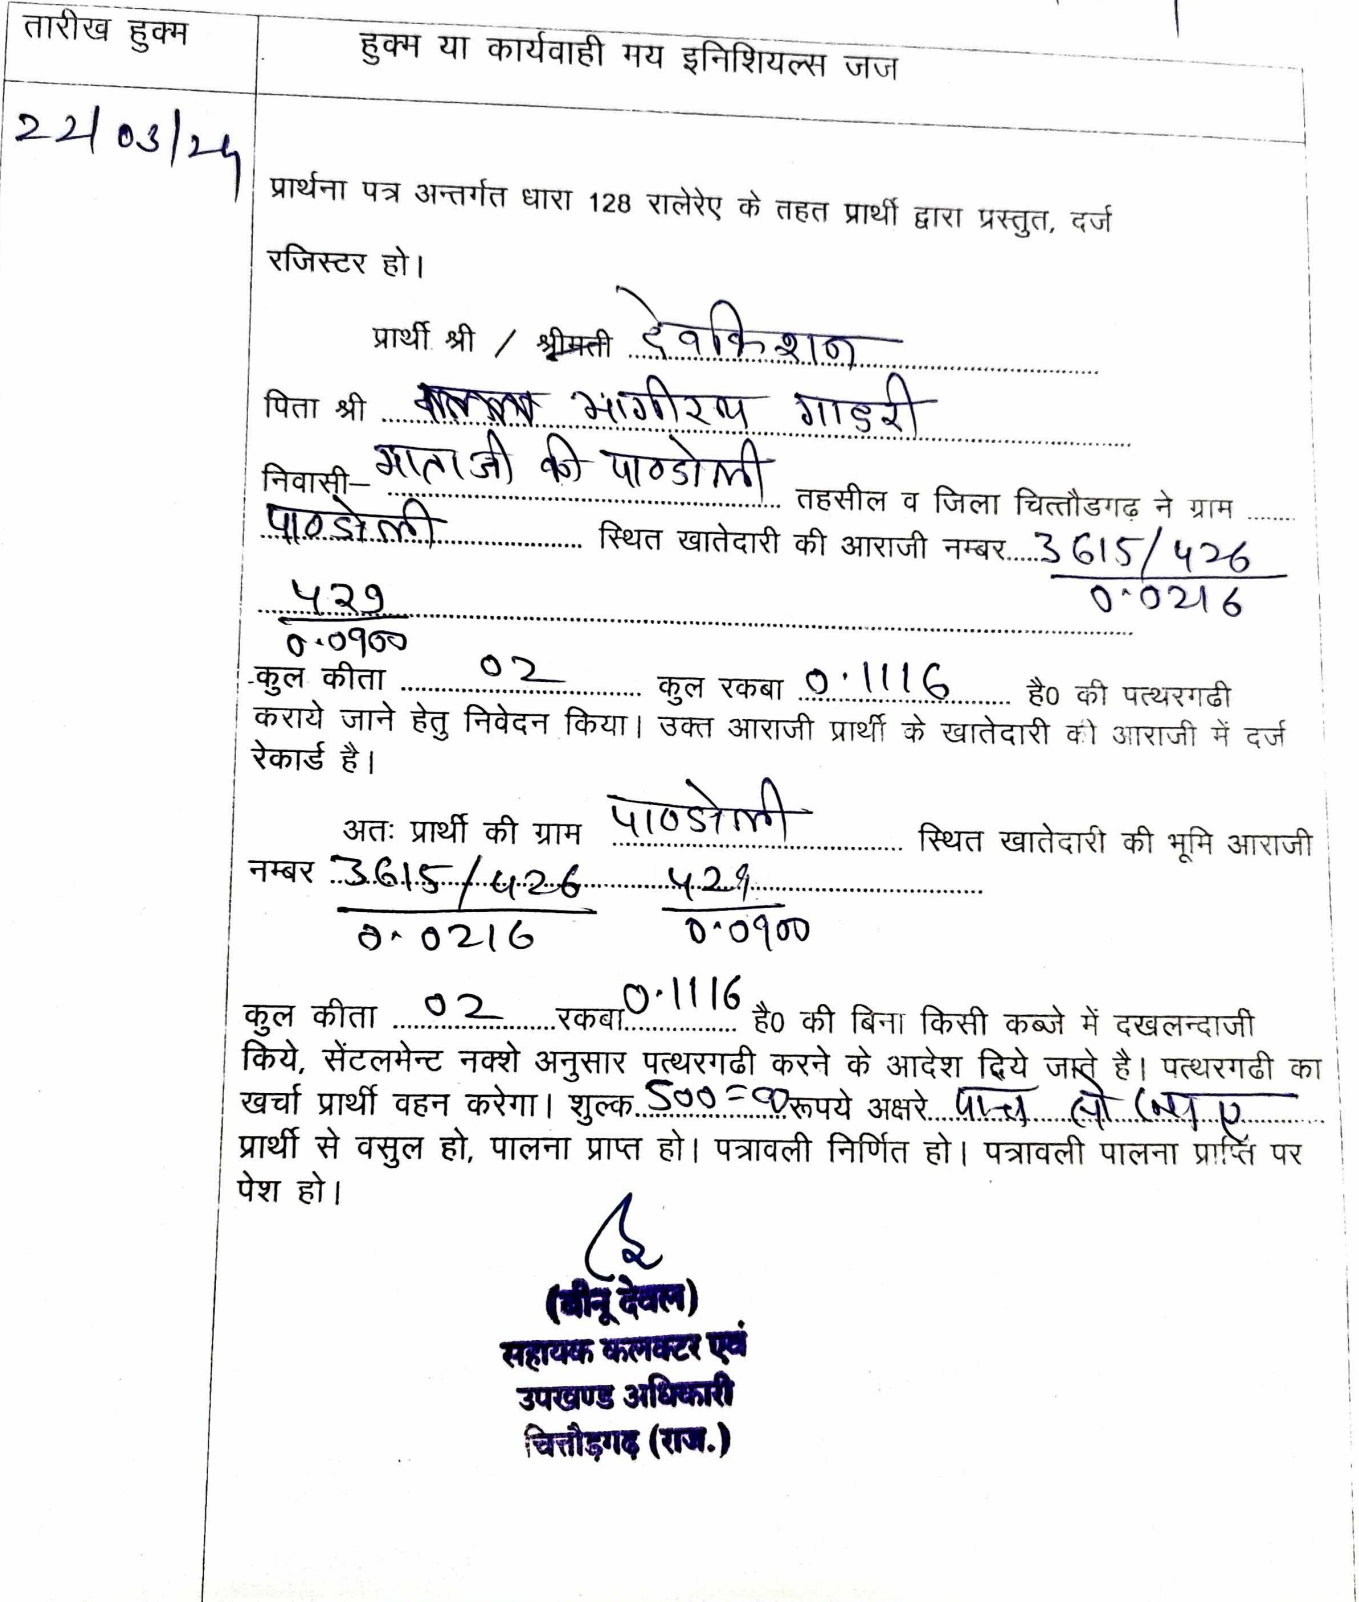 तारीख हुक्म
हुक्म या कार्यवाही मय इनिशियल्स जज
22/03/24
प्रार्थना पत्र अन्तर्गत धारा 128 रालेरेए के तहत प्रार्थी द्वारा प्रस्तुत, दर्ज
रजिस्टर हो।
प्रार्थी श्री / श्रीमती देवकिशन
पिता श्री भागीरथ गाडरी
निवासी– माताजी की पाण्डोली तहसील व जिला चित्तौडगढ़ ने ग्राम ......
पाण्डोली स्थित खातेदारी की आराजी नम्बर.....3615/426
0.0216
429
0.0900
कुल कीता 02 कुल रकबा 0.1116 है0 की पत्थरगढी
कराये जाने हेतु निवेदन किया। उक्त आराजी प्रार्थी के खातेदारी की आराजी में दर्ज
रेकार्ड है।
अतः प्रार्थी की ग्राम पाण्डोली स्थित खातेदारी की भूमि आराजी
नम्बर 3615/426 429
0.0216 0.0900
कुल कीता 02 रकबा 0.1116 है0 की बिना किसी कब्जे में दखलन्दाजी
किये, सेंटलमेन्ट नक्शे अनुसार पत्थरगढी करने के आदेश दिये जाते है। पत्थरगढी का
खर्चा प्रार्थी वहन करेगा। शुल्क 500=00 रूपये अक्षरे पान्च सो रूपए
प्रार्थी से वसुल हो, पालना प्राप्त हो। पत्रावली निर्णित हो। पत्रावली पालना प्राप्ति पर
पेश हो।
(बीनू देवल)
सहायक कलक्टर एवं
उपखण्ड अधिकारी
चित्तौड़गढ़ (राज.)